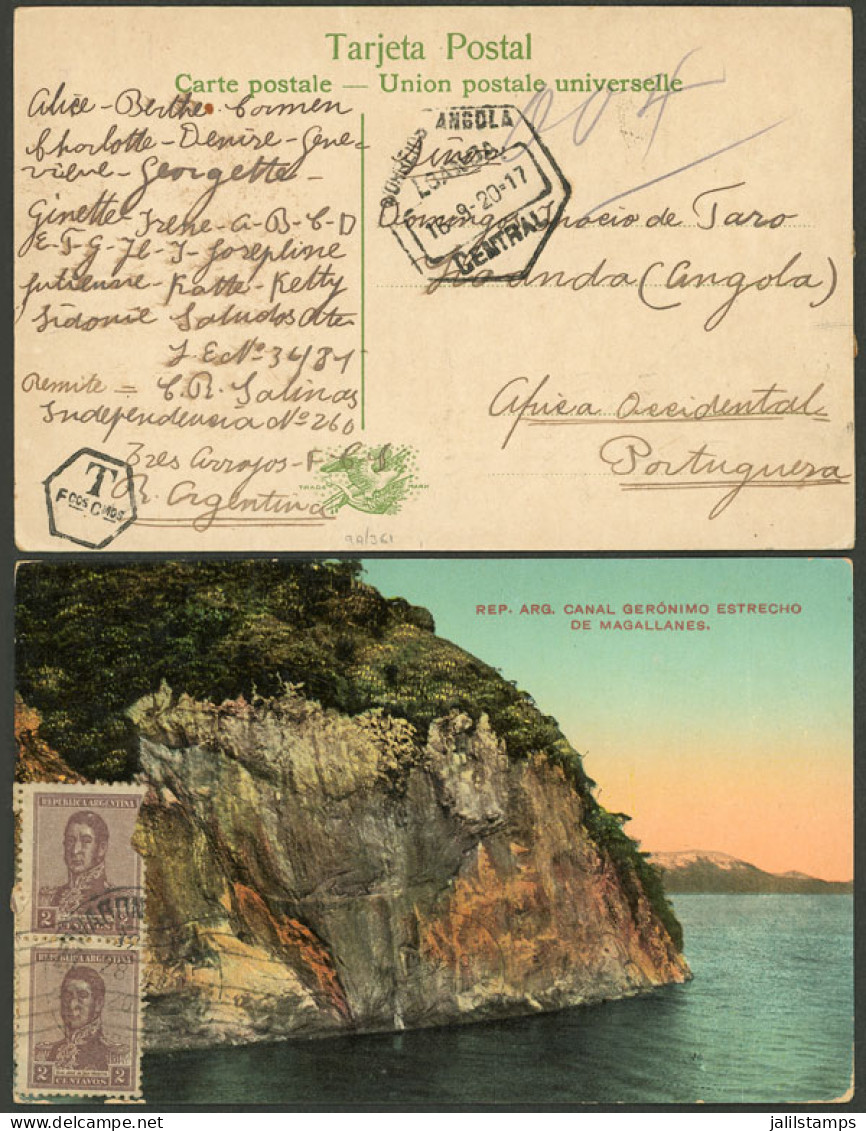 Tarjeta Postal
Carte postale — Union postale universelle
Alice - Berthe - Carmen
Charlotte - Denise - Gene-
vieve - Georgette -
Ginette - Irene - A - B - C - D
E - F - G - H - I - Josephine
Julienne - Katte - Ketty
Sidonie Saludos Ate
J. E. Nº 3481
Remite = C. R. Salinas
Independencia Nº 260
Tres Arroyos - F. C. S
R. Argentina
T
Fcos Cmos
TRADE MARK
99/361
004
CORREIOS ANGOLA
LOANDA
16-9-20-17
CENTRAL
Domingo Inacio de Taro
Loanda (Angola)
Africa Occidental
Portuguesa
REP. ARG. CANAL GERÓNIMO ESTRECHO
DE MAGALLANES.
REPUBLICA ARGENTINA
2 CENTAVOS 2
REPUBLICA ARGENTINA
2 CENTAVOS 2
www.delcampe.net
jalilstamps